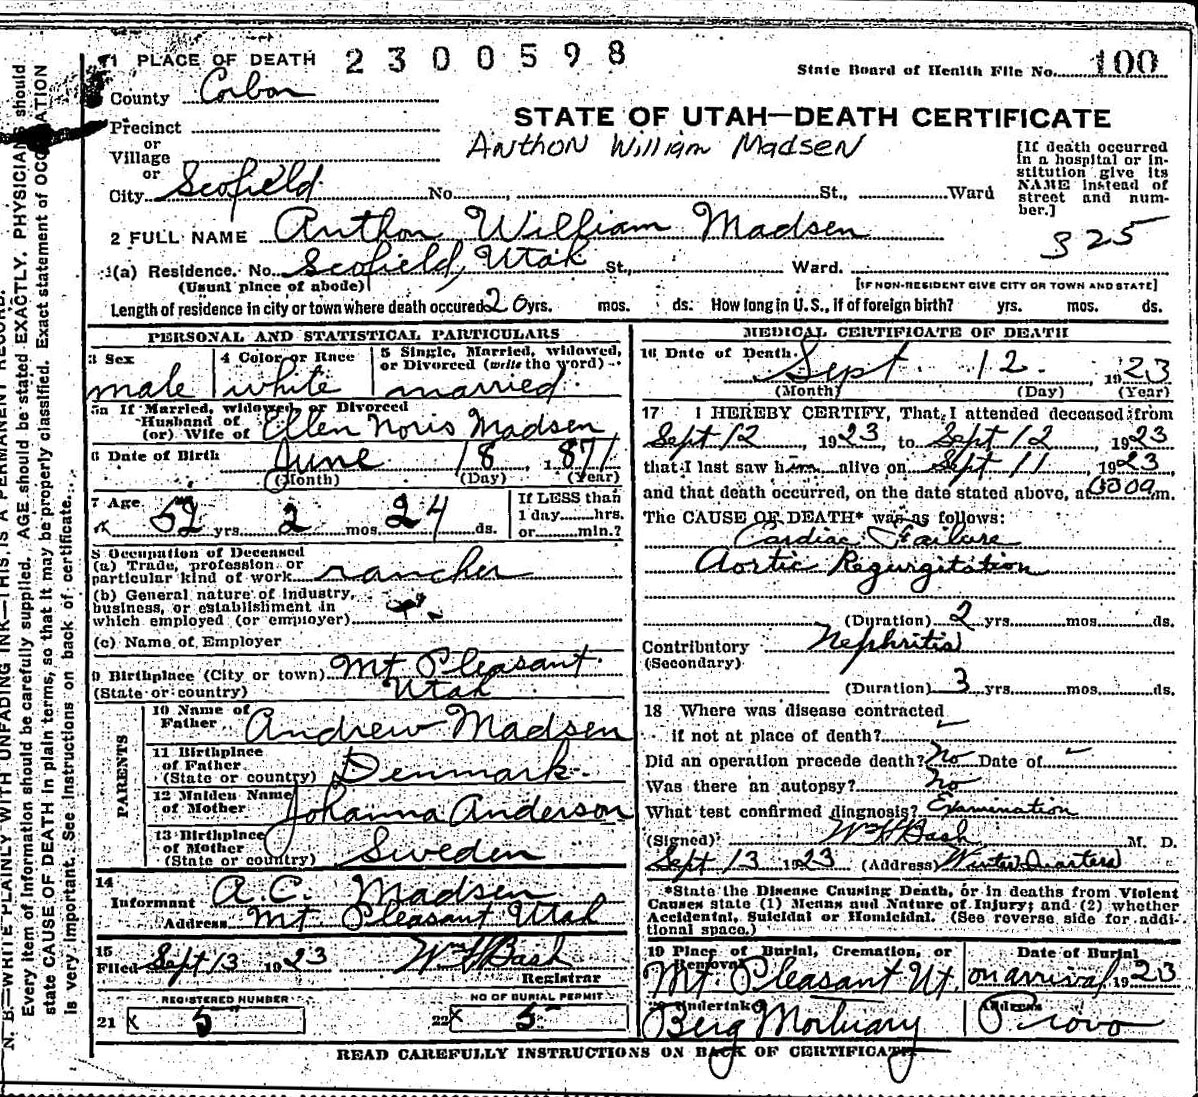 1 PLACE OF DEATH 2300598
State Board of Health File No. 100
County Carbon
STATE OF UTAH—DEATH CERTIFICATE
Precinct
or
Village
or
Anthon William Madsen
[If death occurred in a hospital or institution give its NAME instead of street and number.]
City Scofield No. St., Ward
325
2 FULL NAME Anthon William Madsen
(a) Residence. No. Scofield, Utah St., Ward.
(Usual place of abode) [IF NON-RESIDENT GIVE CITY OR TOWN AND STATE]
Length of residence in city or town where death occured 20 yrs. mos. ds. How long in U.S., if of foreign birth? yrs. mos. ds.
PERSONAL AND STATISTICAL PARTICULARS
3 Sex
male
4 Color or Race
white
5 Single, Married, widowed, or Divorced (write the word)
married
5a If Married, widowed, or Divorced
Husband of
(or) Wife of Ellen Noris Madsen
6 Date of Birth June 18, 1871
(Month) (Day) (Year)
7 Age 52 yrs. 2 mos. 24 ds.
If LESS than
1 day hrs.
or min.?
8 Occupation of Deceased
(a) Trade, profession or
particular kind of work rancher
(b) General nature of industry,
business, or establishment in
which employed (or employer)
(c) Name of Employer
9 Birthplace (City or town) Mt Pleasant
(State or country) Utah
PARENTS
10 Name of
Father Andrew Madsen
11 Birthplace
of Father
(State or country) Denmark
12 Maiden Name
of Mother Johanna Anderson
13 Birthplace
of Mother
(State or country) Sweden
14
Informant A.C. Madsen
Address Mt Pleasant Utah
15
Filed Sept 13 1923 Wm H Bash
Registrar
REGISTERED NUMBER
21 x 5
NO OF BURIAL PERMIT
22 x 5
MEDICAL CERTIFICATE OF DEATH
16 Date of Death
Sept 12, 1923
(Month) (Day) (Year)
17 I HEREBY CERTIFY, That I attended deceased from
Sept 12, 1923 to Sept 12 1923
that I last saw him alive on Sept 11, 1923
and that death occurred, on the date stated above, at m.
The CAUSE OF DEATH* was as follows:
Cardiac Failure
Aortic Regurgitation
(Duration) 2 yrs. mos. ds.
Contributory Nephritis
(Secondary)
(Duration) 3 yrs. mos. ds.
18 Where was disease contracted
if not at place of death?
Did an operation precede death? No Date of
Was there an autopsy? No
What test confirmed diagnosis? Examination
(Signed) Wm H Bash M. D.
Sept 13 1923 (Address) Winter Quarters
*State the Disease Causing Death, or in deaths from Violent
Causes state (1) Means and Nature of Injury; and (2) whether
Accidental, Suicidal or Homicidal. (See reverse side for additional space.)
19 Place of Burial, Cremation, or
Removal
Mt. Pleasant Ut.
Date of Burial
on arrival 1923
Undertaker
Berg Mortuary
Address
Provo
READ CAREFULLY INSTRUCTIONS ON BACK OF CERTIFICATE
N. B.—WRITE PLAINLY WITH UNFADING INK—THIS IS A PERMANENT RECORD.
Every item of information should be carefully supplied. AGE should be stated EXACTLY. PHYSICIANS should
state CAUSE OF DEATH in plain terms, so that it may be properly classified. Exact statement of OCCUPATION
is very important. See instructions on back of certificate.